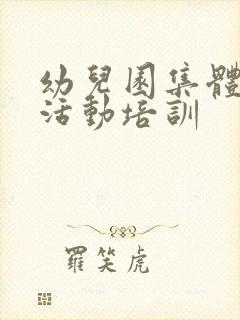 幼兒園集體
活動培訓
羅笑虎